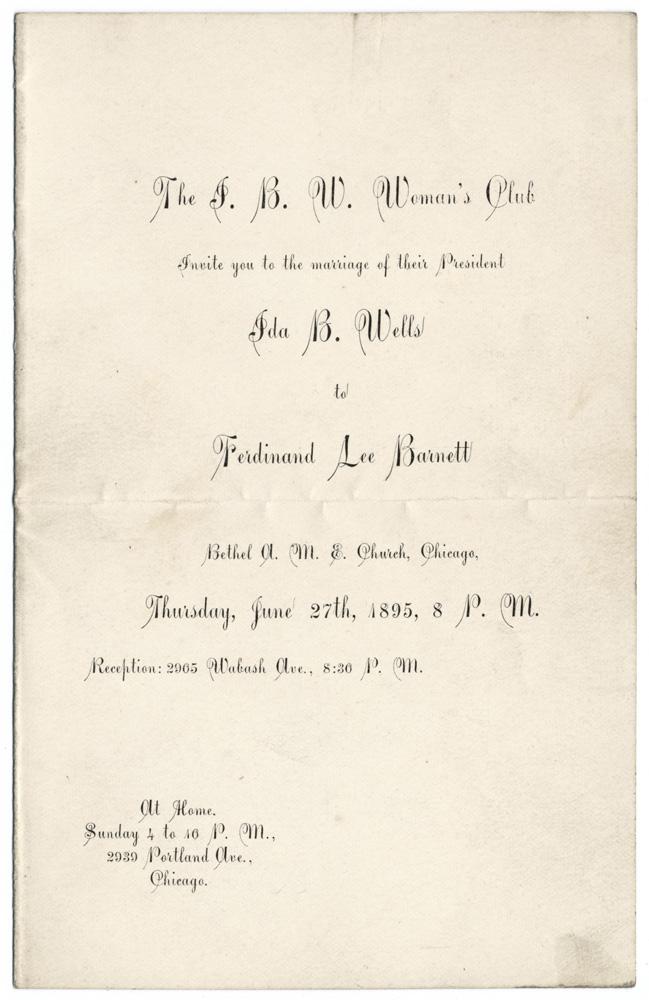 The I. B. W. Woman's Club
Invite you to the marriage of their President
Ida B. Wells
to
Ferdinand Lee Barnett
Bethel A. M. E. Church, Chicago,
Thursday, June 27th, 1895, 8 P. M.
Reception: 2905 Wabash Ave., 8:30 P. M.
At Home.
Sunday 4 to 10 P. M.,
2939 Portland Ave.,
Chicago.